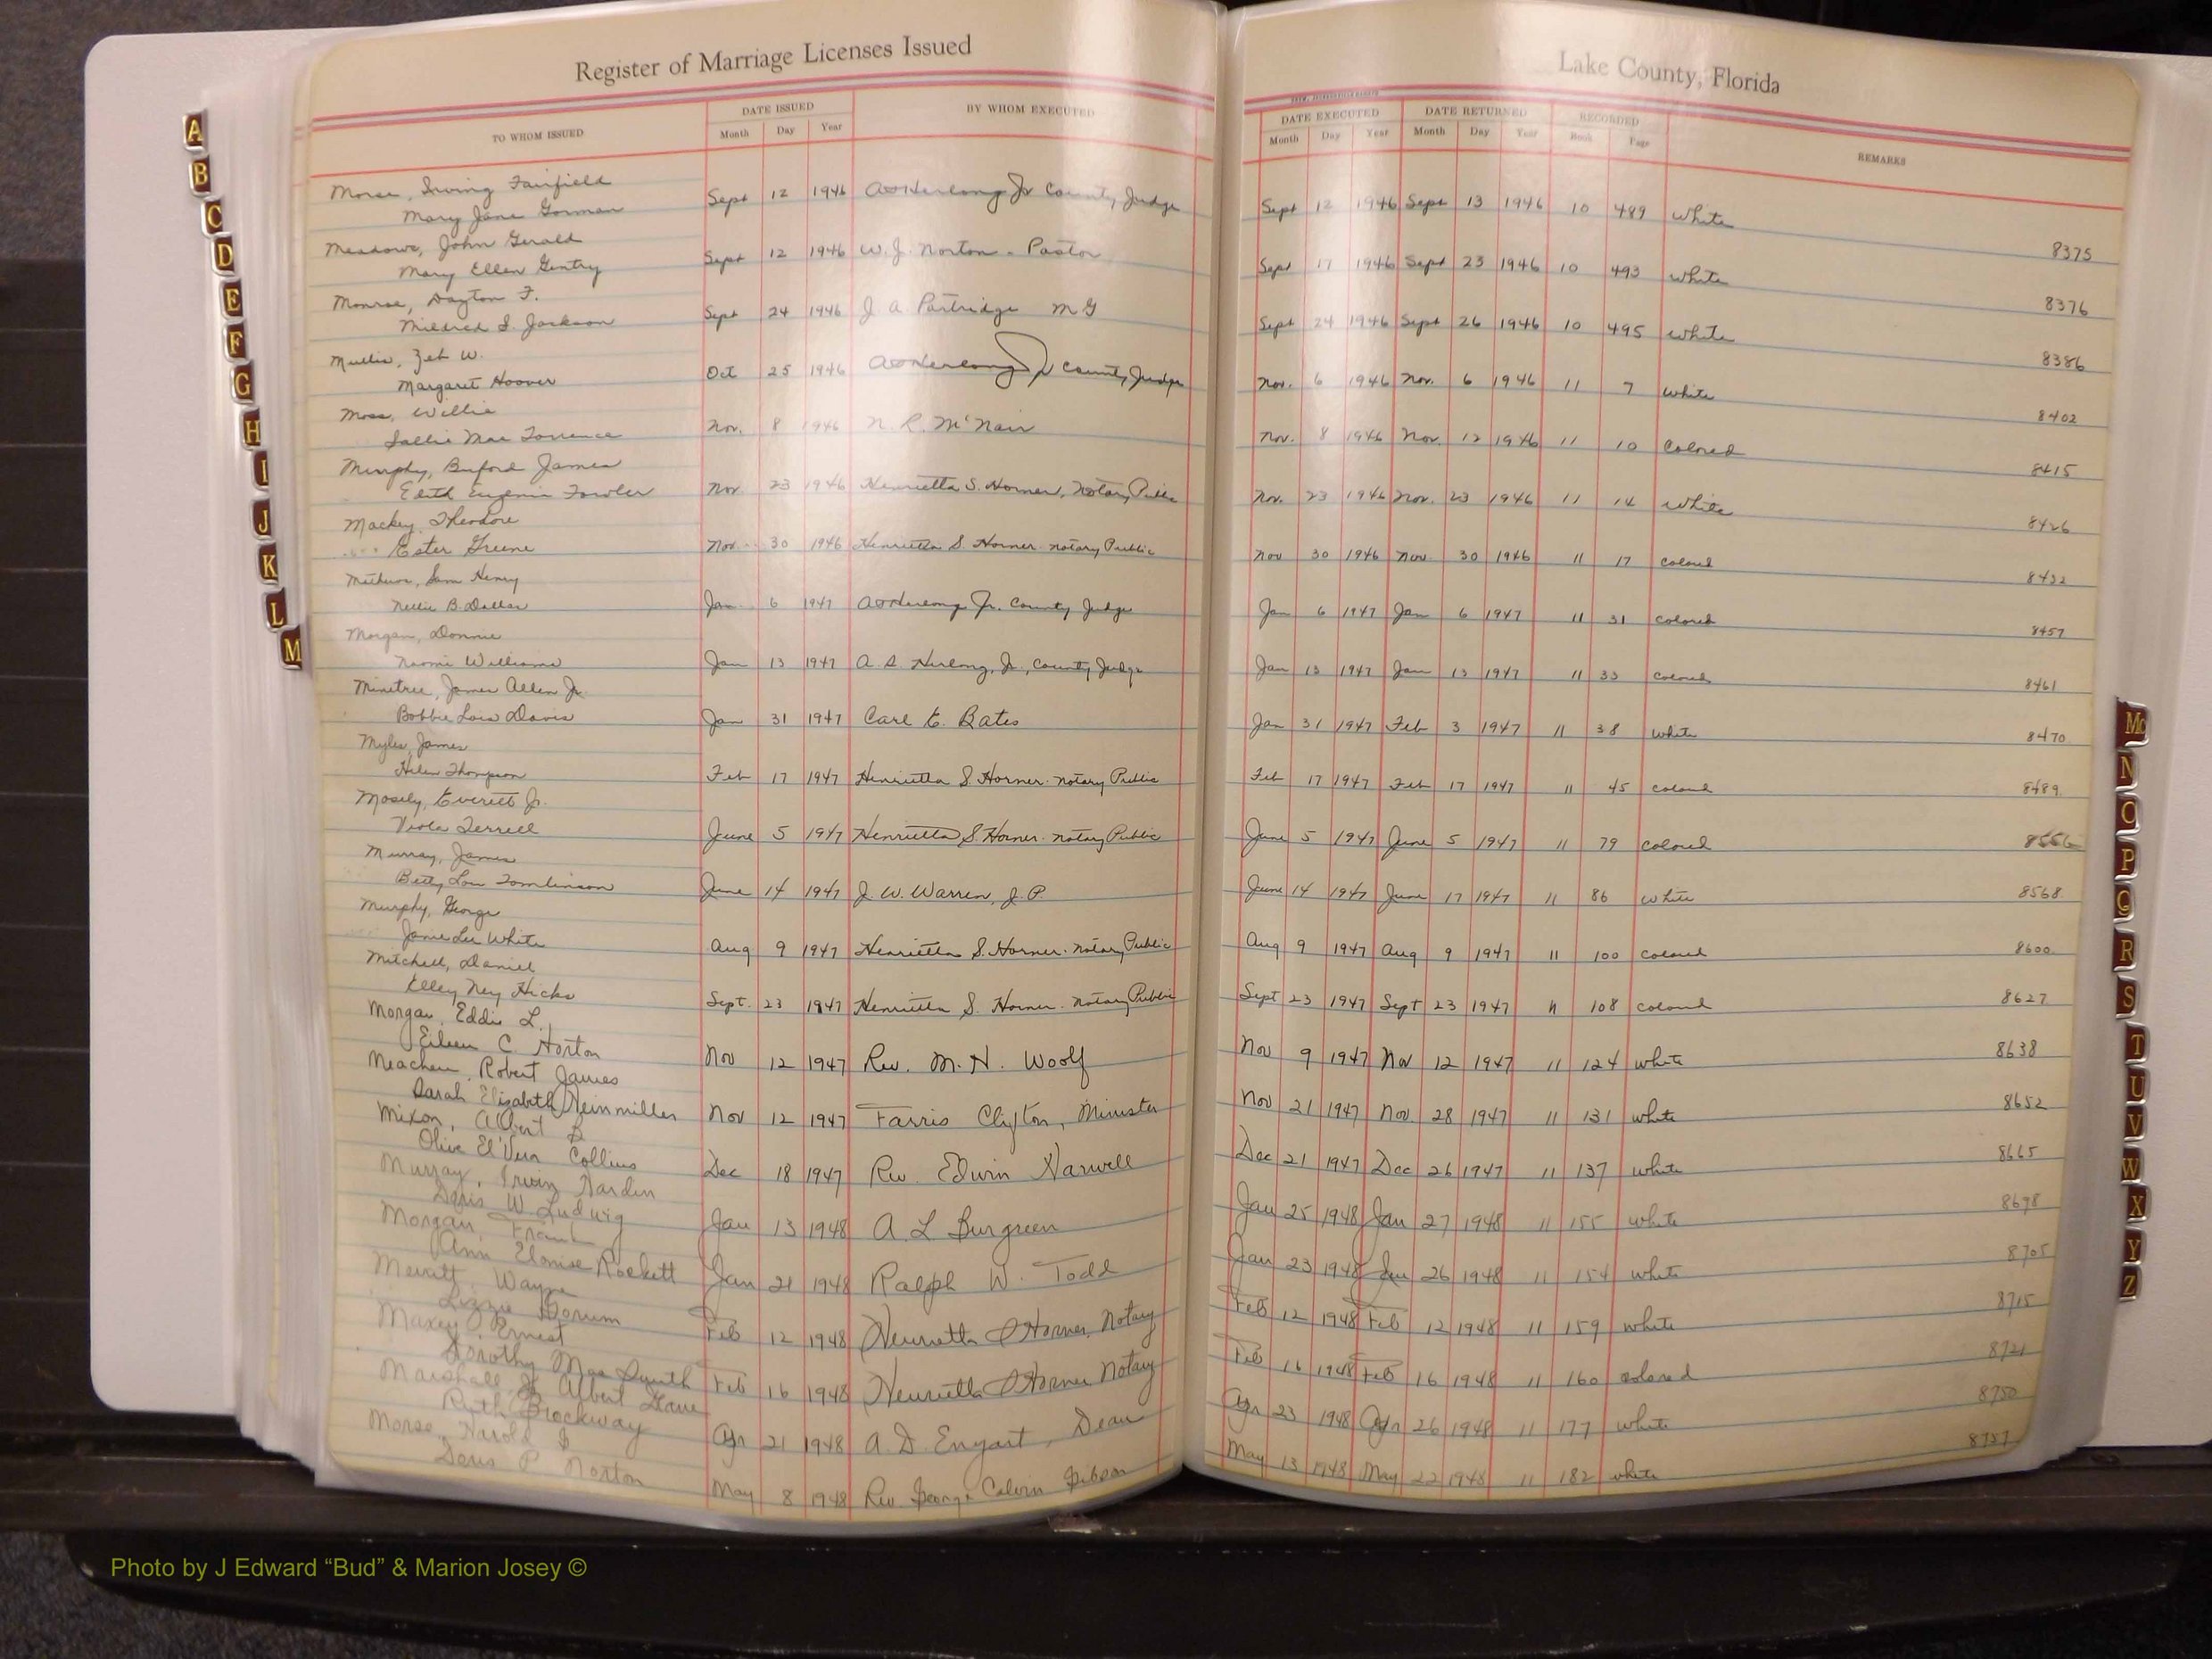 Register of Marriage Licenses Issued
Lake County, Florida
TO WHOM ISSUED DATE ISSUED Month Day Year BY WHOM EXECUTED
DATE EXECUTED Month Day Year DATE RETURNED Month Day Year RECORDED Book Page REMARKS
Morse, Irving Fairfield
Mary Jane Gorman Sept 12 1946 County Judge Sept 12 1946 Sept 13 1946 10 489 White
8375
Meadows, John Gerald
Mary Ellen Gentry Sept 12 1946 W. J. Norton - Pastor Sept 17 1946 Sept 23 1946 10 493 White
8376
Monroe, Dayton F.
Mildred S. Jackson Sept 24 1946 J A Partridge M G Sept 24 1946 Sept 26 1946 10 495 White
8386
Mullis, Zeb W.
Margaret Hoover Oct 25 1946 County Judge Nov. 6 1946 Nov. 6 1946 11 7 White
8402
Moss, Willie
Sallie Mae Torrence Nov. 8 1946 N. R. McNair Nov. 8 1946 Nov. 12 1946 11 10 Colored
8415
Murphy, Buford James
Edith Eugenia Fowler Nov 23 1946 Henrietta S. Horner, Notary Public Nov. 23 1946 Nov. 23 1946 11 14 White
8426
Mackey, Theodore
Ester Greene Nov. 30 1946 Henrietta S Horner. Notary Public Nov 30 1946 Nov 30 1946 11 17 Colored
8432
Sam Henry
Nellie B. Dollar Jan 6 1947 Jr. County Judge Jan 6 1947 Jan 6 1947 11 31 colored
8457
Morgan, Donnie
Naomi Williams Jan 13 1947 A. S. Herlong, Jr., County Judge Jan 13 1947 Jan 13 1947 11 33 colored
8461
Minetree, James Allen Jr.
Bobbie Lois Davis Jan 31 1947 Carl E. Bates Jan 31 1947 Feb 3 1947 11 38 White
8470
Myles, James
Helen Thompson Feb 17 1947 Henrietta S. Horner. Notary Public Feb 17 1947 Feb 17 1947 11 45 colored
8489
Mosely, Everett Jr.
Viola Terrell June 5 1947 Henrietta S. Horner. Notary Public June 5 1947 June 5 1947 11 79 colored
8556
Murray, James
Betty Lou Tomlinson June 14 1947 J. W. Warren, J. P. June 14 1947 June 17 1947 11 86 White
8568
Murphy, George
Janie Lee White Aug 9 1947 Henrietta S. Horner. Notary Public Aug 9 1947 Aug 9 1947 11 100 colored
8600
Mitchell, Daniel
Elley Ney Hicks Sept. 23 1947 Henrietta S. Horner. Notary Public Sept 23 1947 Sept 23 1947 11 108 colored
8627
Morgan, Eddie L.
Eileen C Horton Nov 12 1947 Rev. M. H. Woolf Nov 9 1947 Nov 12 1947 11 124 white
8638
Meachem, Robert James
Sarah Elizabeth Neinmiller Nov 12 1947 Farris Clifton, Minister Nov 21 1947 Nov. 28 1947 11 131 white
8652
Mixon, Albert B
Olive El'Vera Collins Dec 18 1947 Rev. Edwin Harwell Dec 21 1947 Dec 26 1947 11 137 white
8665
Murray, Irwin Harden
Doris W. Ludwig Jan 13 1948 A L Burgreen Jan 25 1948 Jan 27 1948 11 155 white
8698
Morgan, Frank
Ann Eloise Rockett Jan 21 1948 Ralph W. Todd Jan 23 1948 Jan 26 1948 11 154 white
8705
Merritt, Wayne
Lizzie Feb 12 1948 Henrietta S Horner, Notary Feb 12 1948 Feb 12 1948 11 159 white
8715
Maxey, Ernest
Dorothy Mae Smith Feb 16 1948 Henrietta S Horner Notary Feb 16 1948 Feb 16 1948 11 160 colored
8721
Marshall, Jr Albert
Ruth Brockway Apr 21 1948 A. D. Enyart, Dean Apr 23 1948 Apr 26 1948 11 177 white
8750
Morse, Harold
Doris P. Norton May 8 1948 Rev. George Calvin Gibson May 13 1948 May 22 1948 11 182 white
8757
A
B
C
D
E
F
G
H
I
J
K
L
M
Mc
N
O
P
Q
R
S
T
U
V
W
X
Y
Z
Photo by J Edward “Bud” & Marion Josey ©